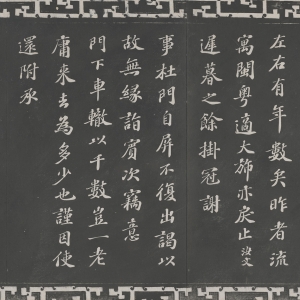 左右有年數矣昨者流
寓閩粵適大旆亦戾止
遲暮之餘掛冠謝
事杜門自屏不復出謁以
故無緣詣賓次竊意
門下車轍以千數豈一老
庸來去為多少也謹因使
還附承